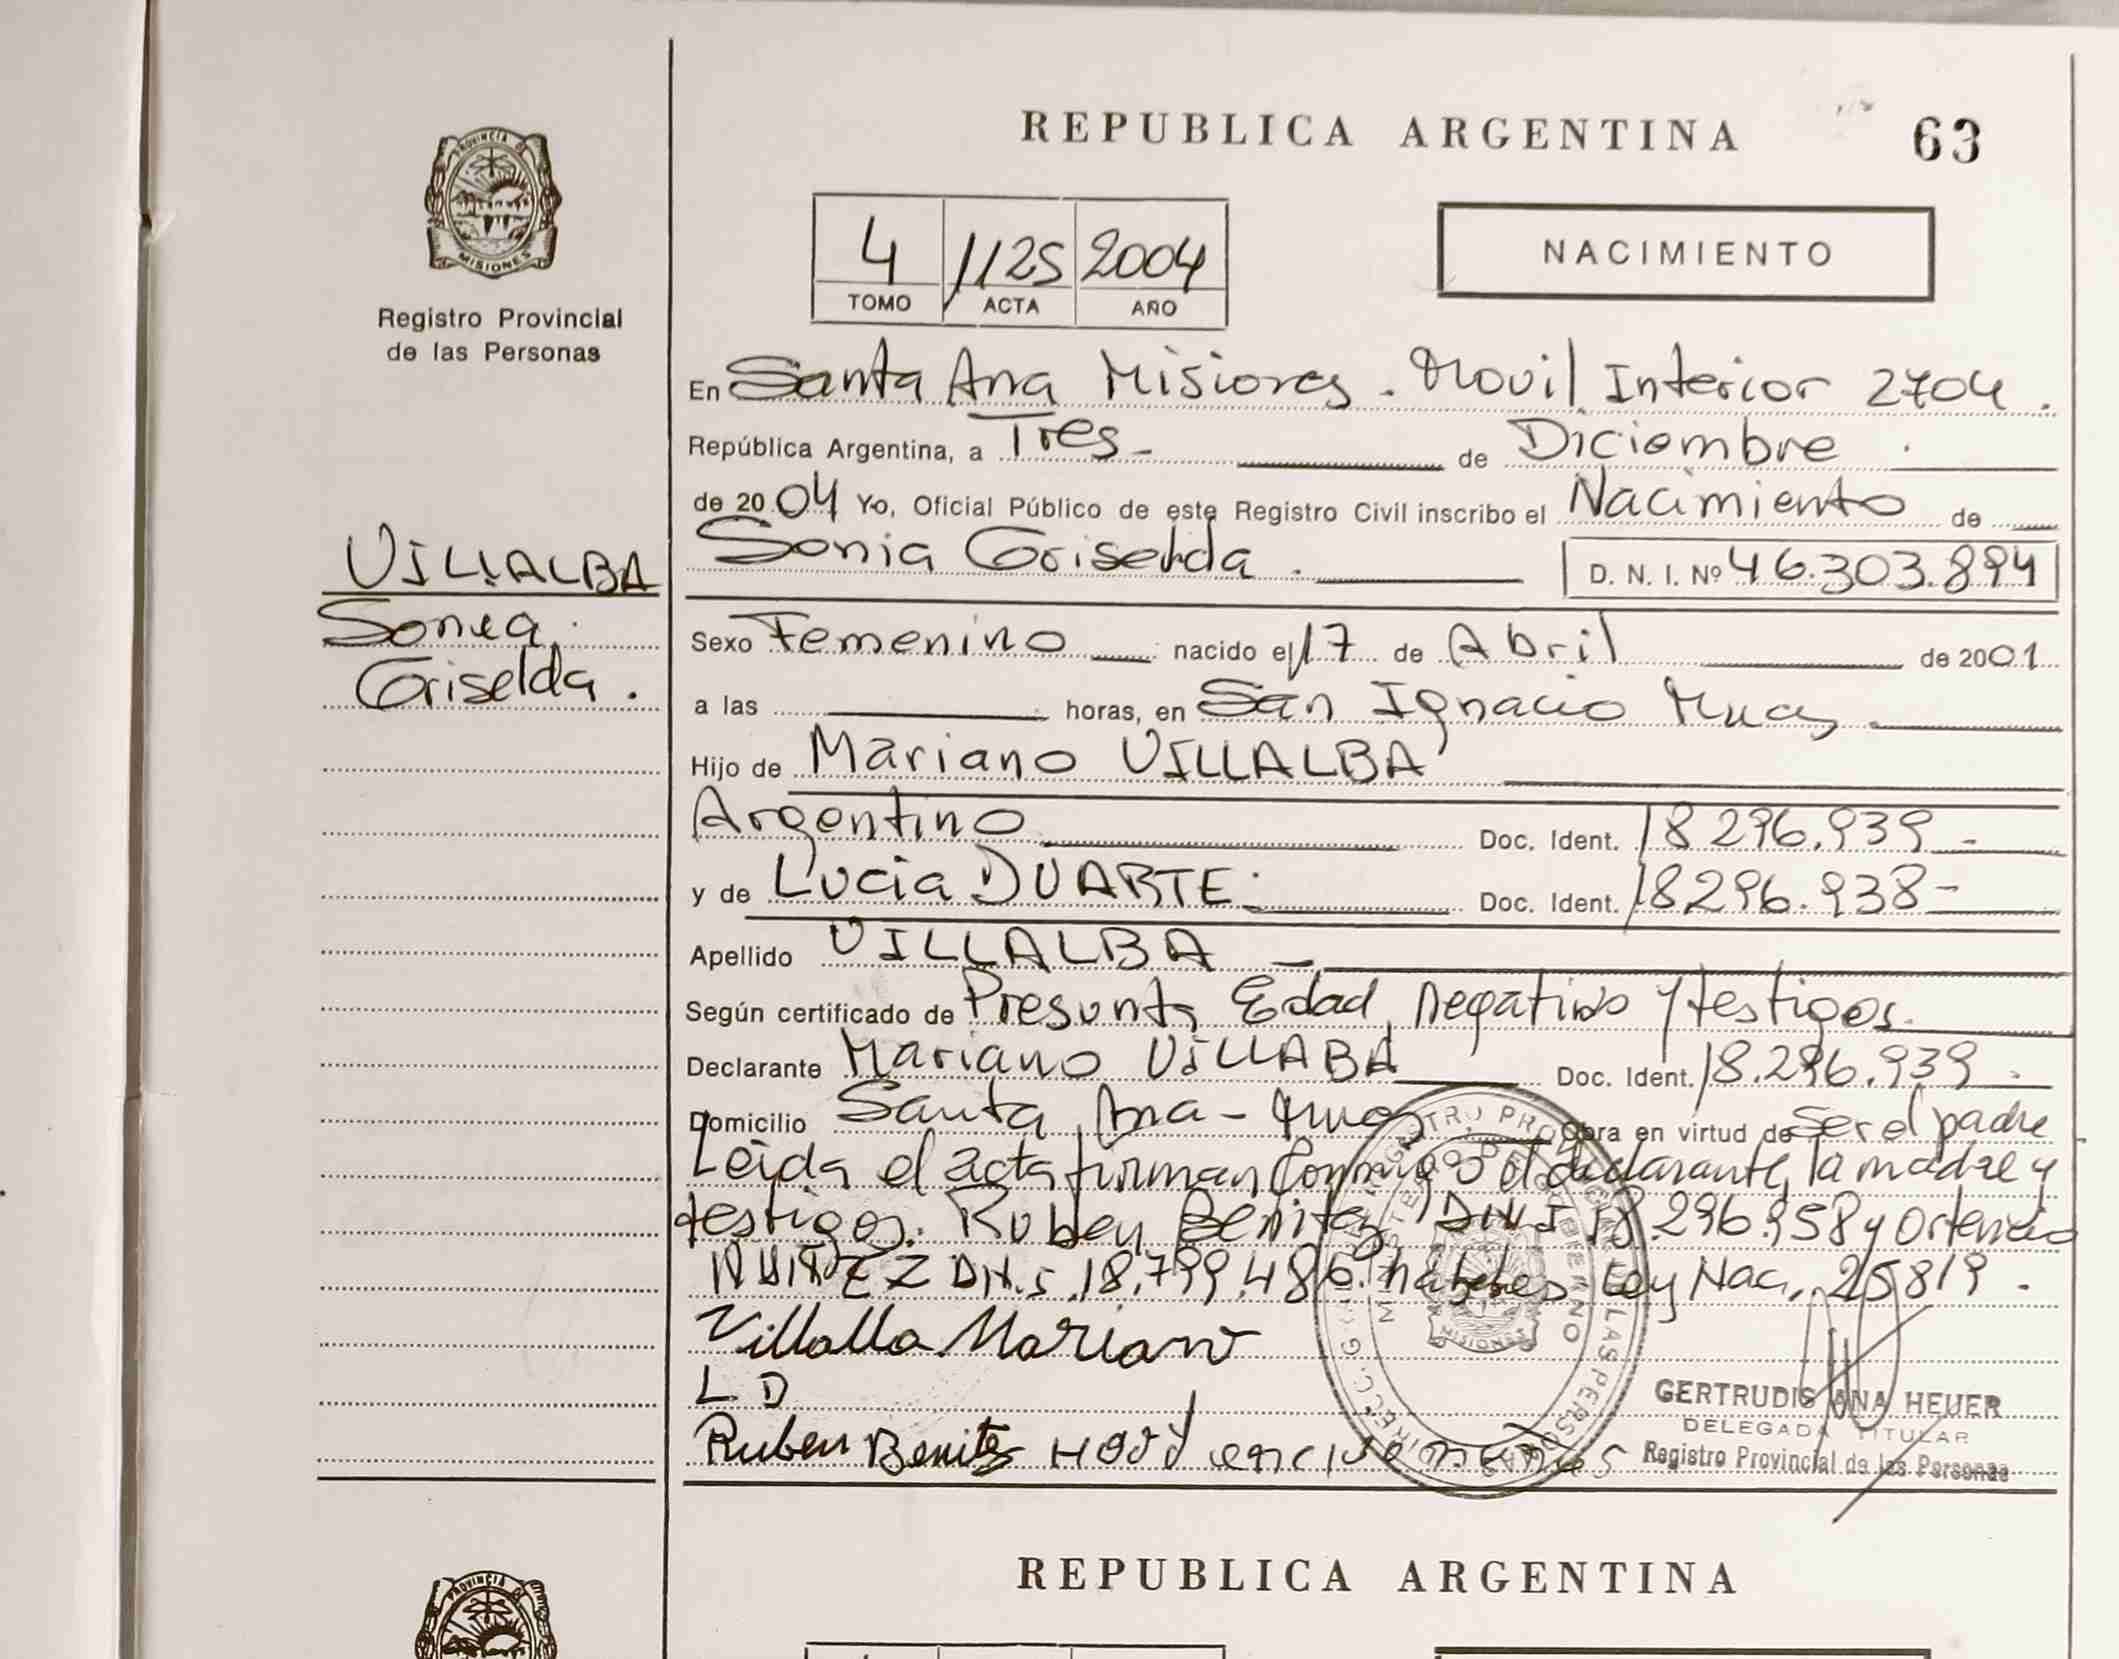 REPUBLICA ARGENTINA
63
PROVINCIA DE
MISIONES
Registro Provincial
de las Personas
4 1125 2004
TOMO ACTA AÑO
NACIMIENTO
En Santa Ana Misiones. Movil Interior 2704.
República Argentina, a Tres - de Diciembre.
de 2004 Yo, Oficial Público de este Registro Civil inscribo el Nacimiento de
Sonia Griselda. D. N. I. Nº 46.303.894
VILLALBA
Sonia
Griselda.
Sexo Femenino nacido el 17 de Abril de 2001
a las horas, en San Ignacio Mnes.
Hijo de Mariano VILLALBA
Argentino Doc. Ident. 18296.939-
y de Lucia DUARTE. Doc. Ident. 18296.938-
Apellido VILLALBA -
Según certificado de Presunta Edad, negativo y testigos.
Declarante Mariano VILLABA Doc. Ident. 18.296.939.
Domicilio Santa Ana - Mnes Obra en virtud de Ser el padre
Leida el acta firman conmigo el declarante, la madre y
testigos. Ruben Benitez DNI 18.296.958 y Ortencio
NUÑEZ DNI. 18.799.486. habiles Ley Nac. 25819.
Villalla Mariano
L D
Ruben Benites
GERTRUDIS ANA HEUER
DELEGADA TITULAR
Registro Provincial de las Personas
REPUBLICA ARGENTINA
PROVINCIA DE